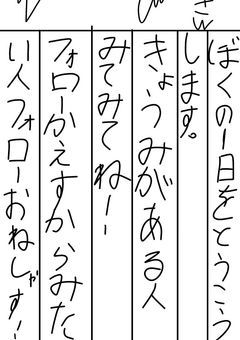 ぼくの1日をとうこう
します。
きょうみがある人
みてみてねー!
フォローかえすからみた
い人フォローおねしゃす!